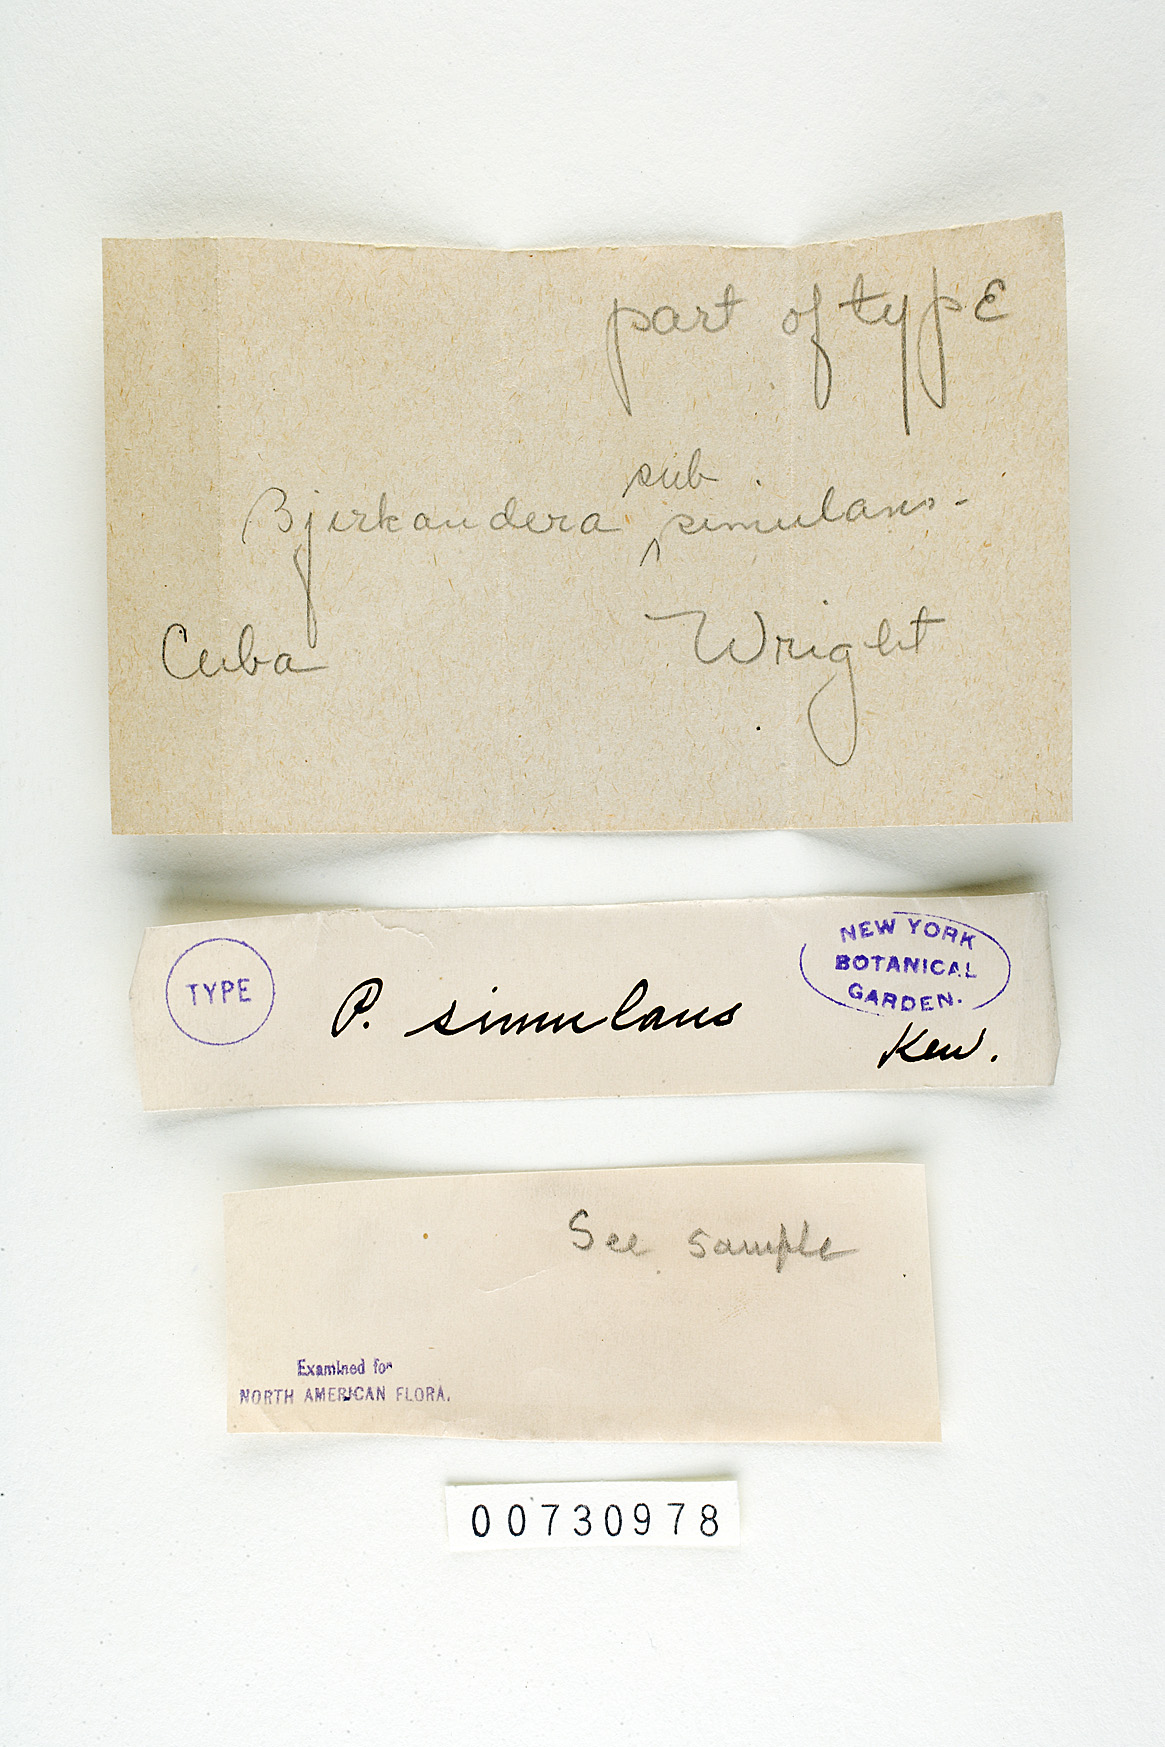 part of type
sub
Bjerkandera ‸ simulans.
Cuba Wright
TYPE
P. simulans
NEW YORK
BOTANICAL
GARDEN.
Kew.
See sample
Examined for
NORTH AMERICAN FLORA.
00730978